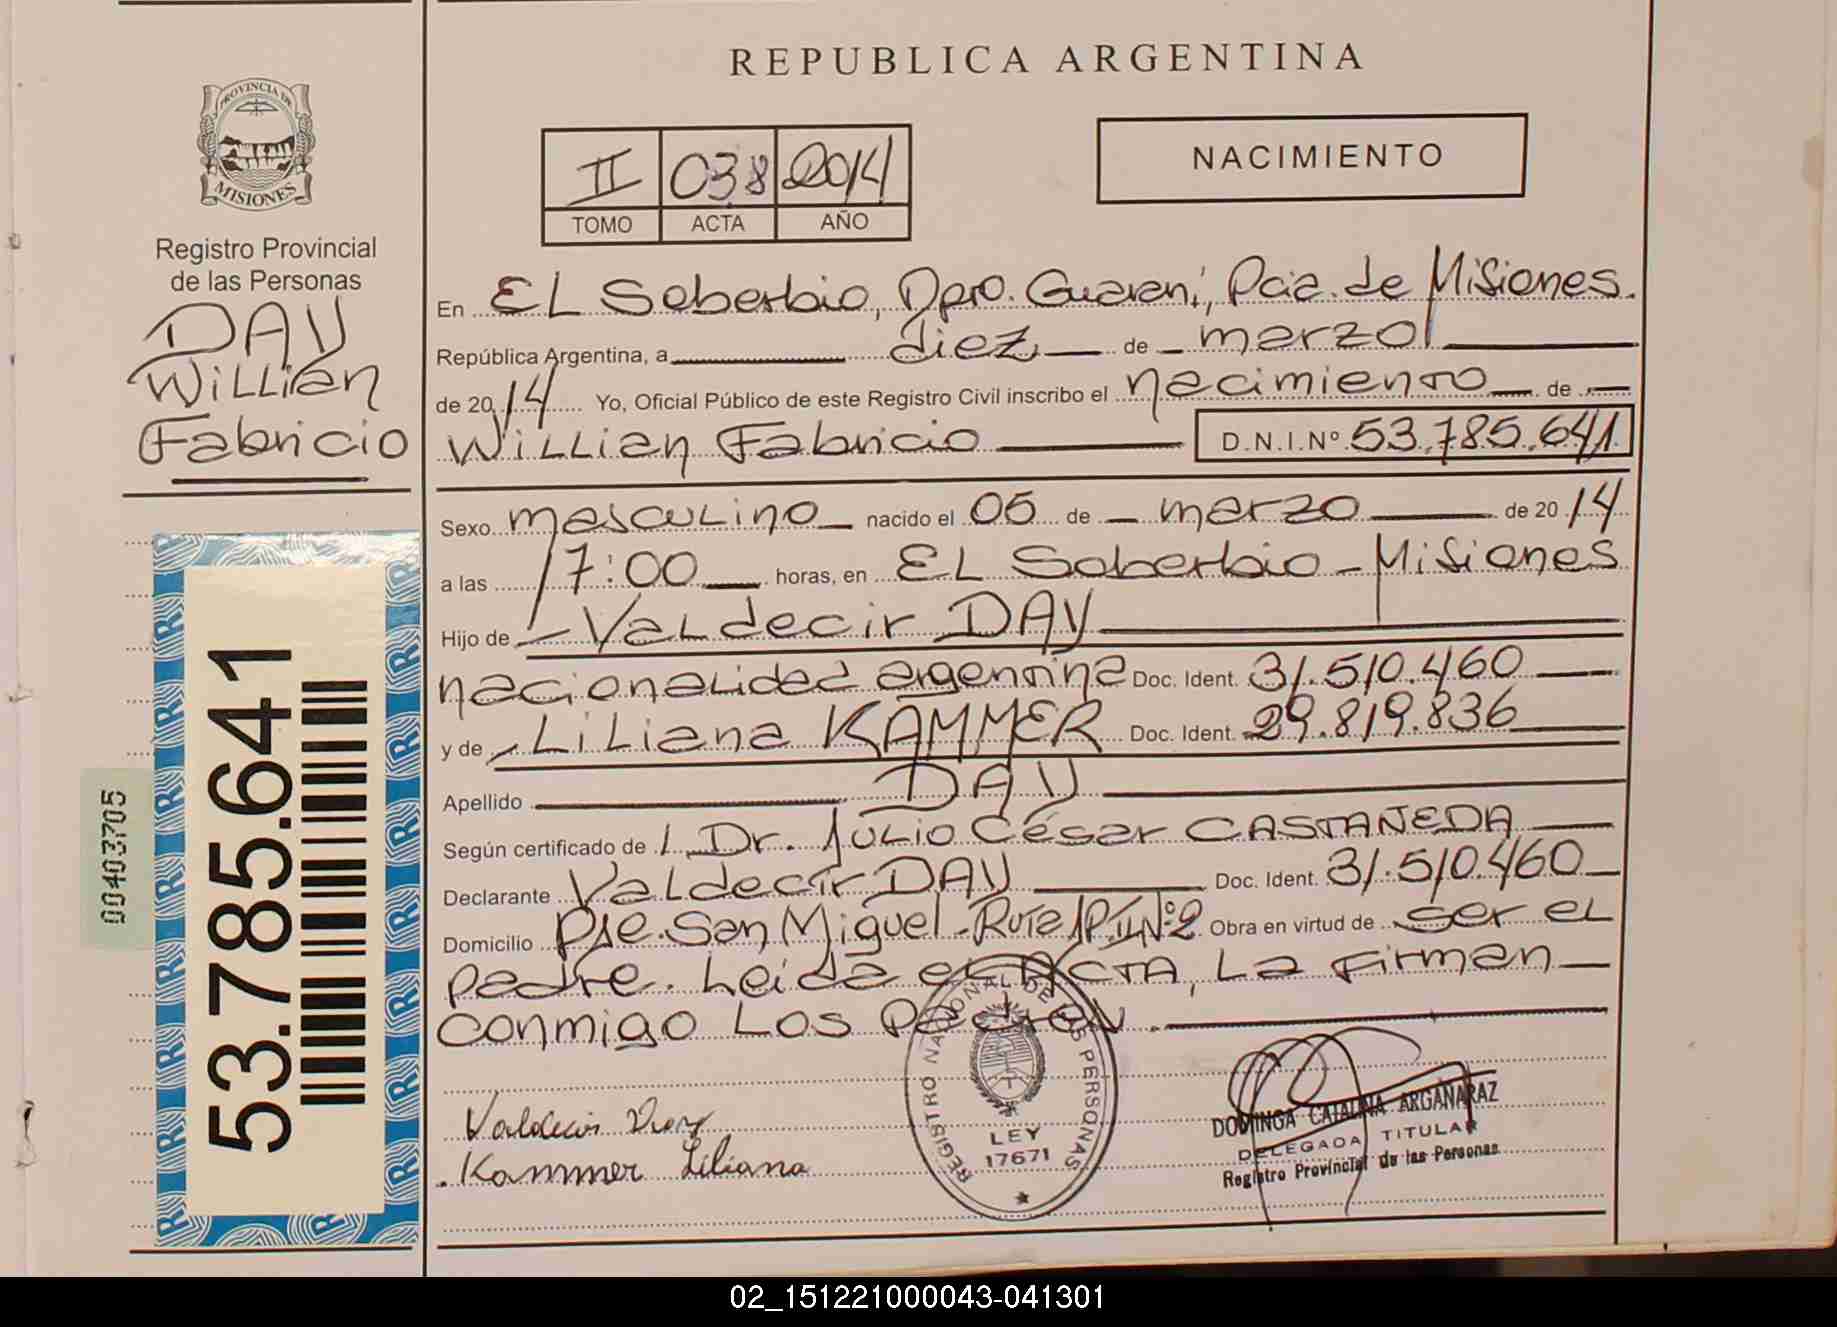 REPUBLICA ARGENTINA
PROVINCIA DE MISIONES
Registro Provincial
de las Personas
DAY
Willian
Fabricio
II 038 2014
TOMO ACTA AÑO
NACIMIENTO
En EL Soberbio, Dpto. Guaraní, Pcia. de Misiones.
República Argentina, a diez de marzo
de 2014 Yo, Oficial Público de este Registro Civil inscribo el nacimiento de
Willian Fabricio D.N.I.Nº 53.785.641
Sexo masculino nacido el 05 de marzo de 2014
a las 17:00 horas, en EL Soberbio - Misiones
Hijo de Valdecir DAY
nacionalidad argentina Doc. Ident. 31.510.460
y de Liliana KAMMER Doc. Ident. 29.819.836
Apellido DAY
Según certificado de Dr. Julio César CASTAÑEDA
Declarante Valdecir DAY Doc. Ident. 31.510.460
Domicilio Pje. San Miguel - Ruta Nº 2 Obra en virtud de ser el
padre. Leida el ACTA, La Firman
conmigo Los
Valdecir Day
Kammer Liliana
REGISTRO NACIONAL DE LAS PERSONAS
LEY
17671
DOMINGA CATALINA ARGAÑARAZ
DELEGADA TITULAR
Registro Provincial de las Personas
53.785.641
00403705
02_151221000043-041301